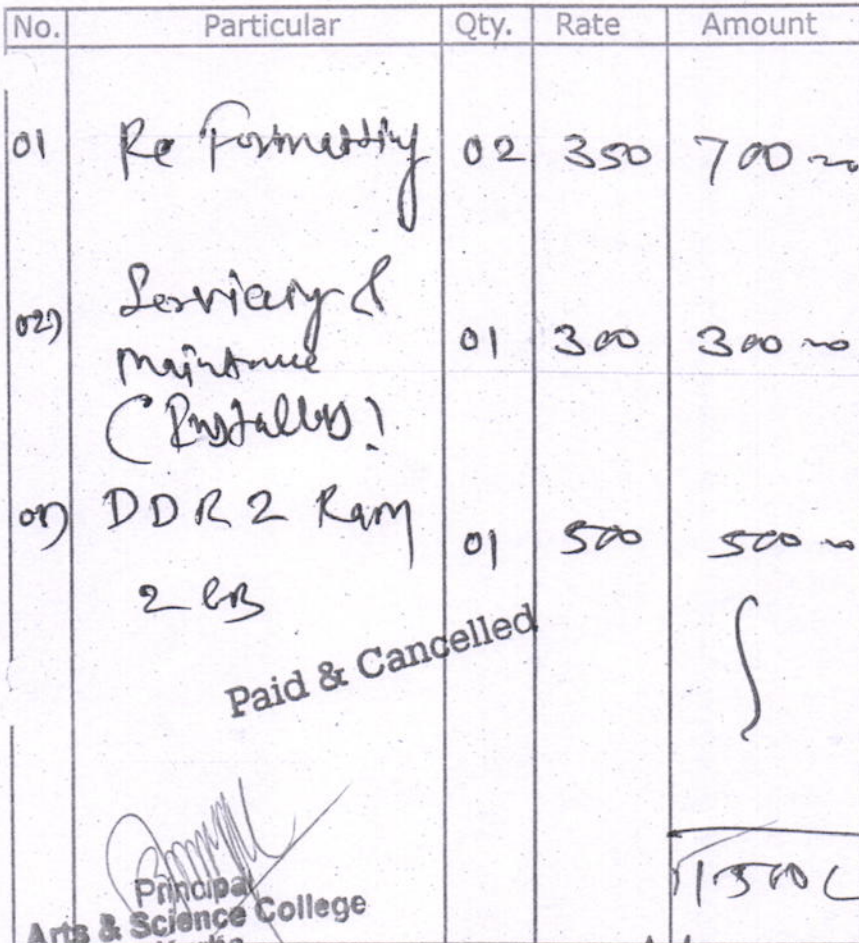 No. Particular Qty. Rate Amount
01 Re Formatting 02 350 700
02) Servicing &
Maintance 01 300 300
DDR2 Ram 01 500 500
2 GB
Paid & Cancelled
Principal
Arts & Science College